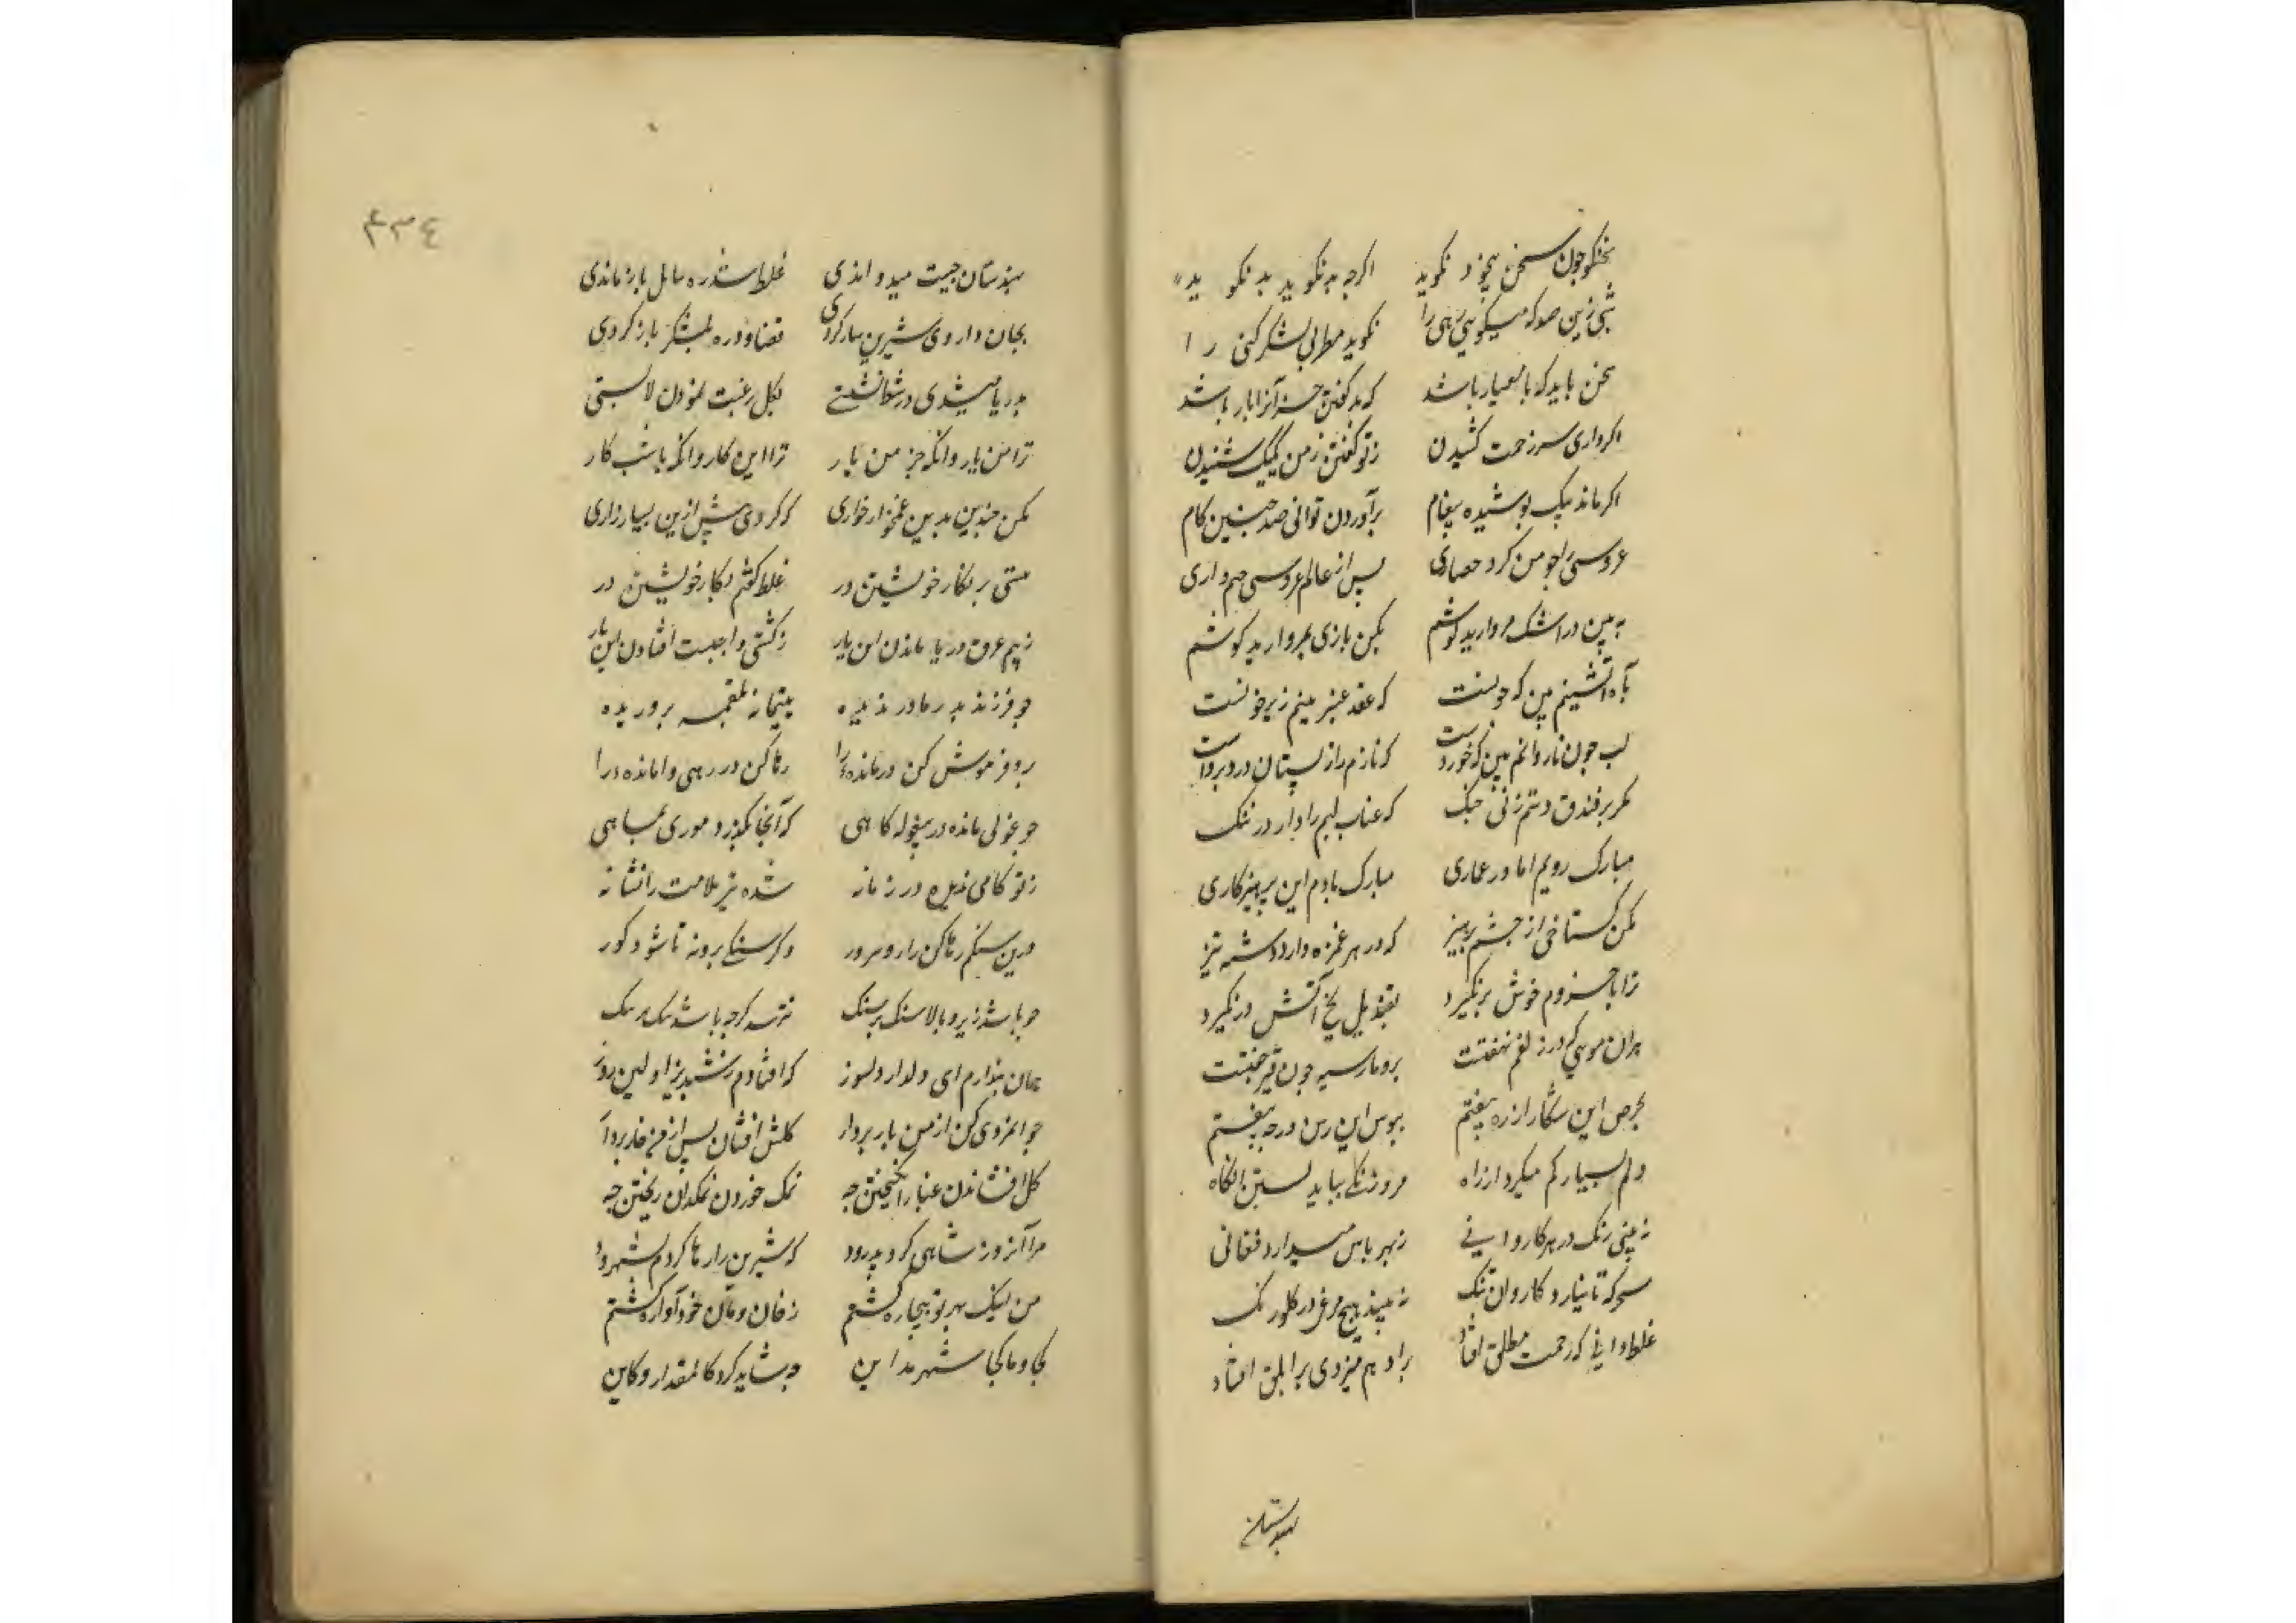 سخنگو چون سخن بیخود نکوید اکرچه بد نکوید بد نکوید
سخن باید که با معیار باشد که پر کفتن خران را بار باشد
اکرداری سر زحمت کشیدن ز تو کفتن ز من یک یک شنیدن
اکر ماند یک بوشیده پیغام برآوردن توانی صد چنین کام
عروسی را جو من کرد حصاری پس از عالم عروسی جم داری
به بین در اشک مروارید پوشم مکن بازی بمروارید کوشم
به آه آتشینم بین که جونست که عقد عنبرینم زیر خونست
لب جون ناردانم بین که خوردست که نارم را ز بستان دزد بردست
مکر بر فندق دستم زنی جنک که عناب لبم را دارد در تنک
مبارک رویم اما در عماری مبارک بادم این پرهیزکاری
مکن کستاخی از جشم بپرهیز که در هر غمزه دارد دشنه تیز
ترا با من دم خوش در نکیرد بقندیل یخ آتش در نکیرد
هران مویی که در زلفم نهفتست برو مار سیه جون قیر خفتست
بحرص این شکار از ره بیفتم بپوس این رسن در چه بیفتم
دلم بسیار کم میکردد از راه مروزنکی بباید بستن انکاه
نه بینی زنک در هر کاروانی ز بهر پاس میدارد فغانی
سحرکه تا نیارد کاروان تنک نه بیند هیچ مرغ در کلو رنک
غلط دانی که رحمت مطلق افتاد براو هم میزدی بر ابلق افتاد
بهندستان
٤٣٤
بهندستان جنیبت میدواندی غلط شد ره ببابل باز ماندی
بجان داروی شیرین ساز کردی قضا ودره بشکر باز کردی
بدریا میشدی در شط نشستی بکل رغبت نمودن لاله بستی
ترا من یار وانکه جز من یار ترا این کار وانکه با تبت کار
مکن جندین بدین غمخوار خواری که کردی پیش ازین بسیار زاری
مستی بر بکار خویشتن در غلط کفتم بکار خویشتن در
ز بیم غرق دریا ماندن این یار ز کشتی واجبست افتادن این بار
جو فرزندی پدر مادر ندیده یتیمانه بلقمه پروریده
برو فرموش کن درمانده را رها کن در رهی وامانده را
جو غولی مانده در بیغوله کاهی که آنجا نکذرد موری بماهی
ز تو کامی ندیده در زمانه شده تیر ملامت را نشانه
درین سنکم رها کن زار و مهجور وکر سنکی برونه تا شود کور
جو باشد زیر و بالا سنک بر سنک نترسد کرچه باشد سنک بر سنک
همان پندارم ای دلدار دلسوز که افتادم ز شبدیز اولین روز
جوانمردی کن از من بار بردار کلش افشان
کل افشاندن غبار انکیختن چه نمک خوردن نمکدان ریختن چه
مرا آنروز شاهی کرد بدرود که شیرین را رها کردم بشهرود
من لیک بهر تو بیچاره کشتم ز خان و مان خود آواره کشتم
کجا و ما کجا شهر مداین چه شاید کرد کالمقدار و کاین